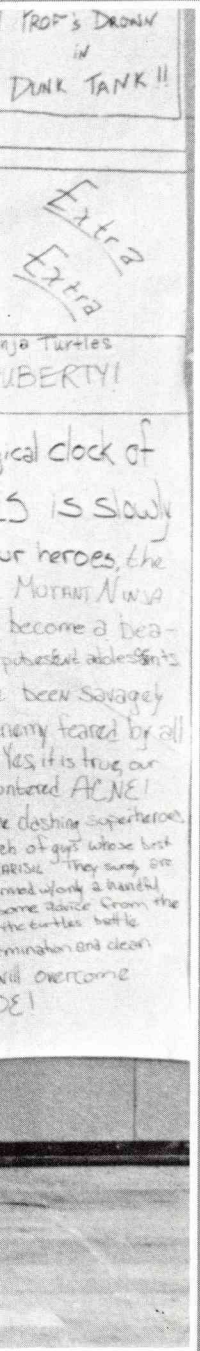 PROF's DROWN
in
DUNK TANK!!
Extra
Extra
nja Turtles
UBERTY!
ical clock of
is slowly
ur heroes, the
MUTANT NINJA
become a bea-
adolescents
been savagely
nemy feared by all
Yes, it is true, our
untered ACNE!
dashing superheroes
ch of guys whose best
They surely are
rmed w/only a handful
some advice from the
the turtles battle
mination and clean
will overcome
DE!